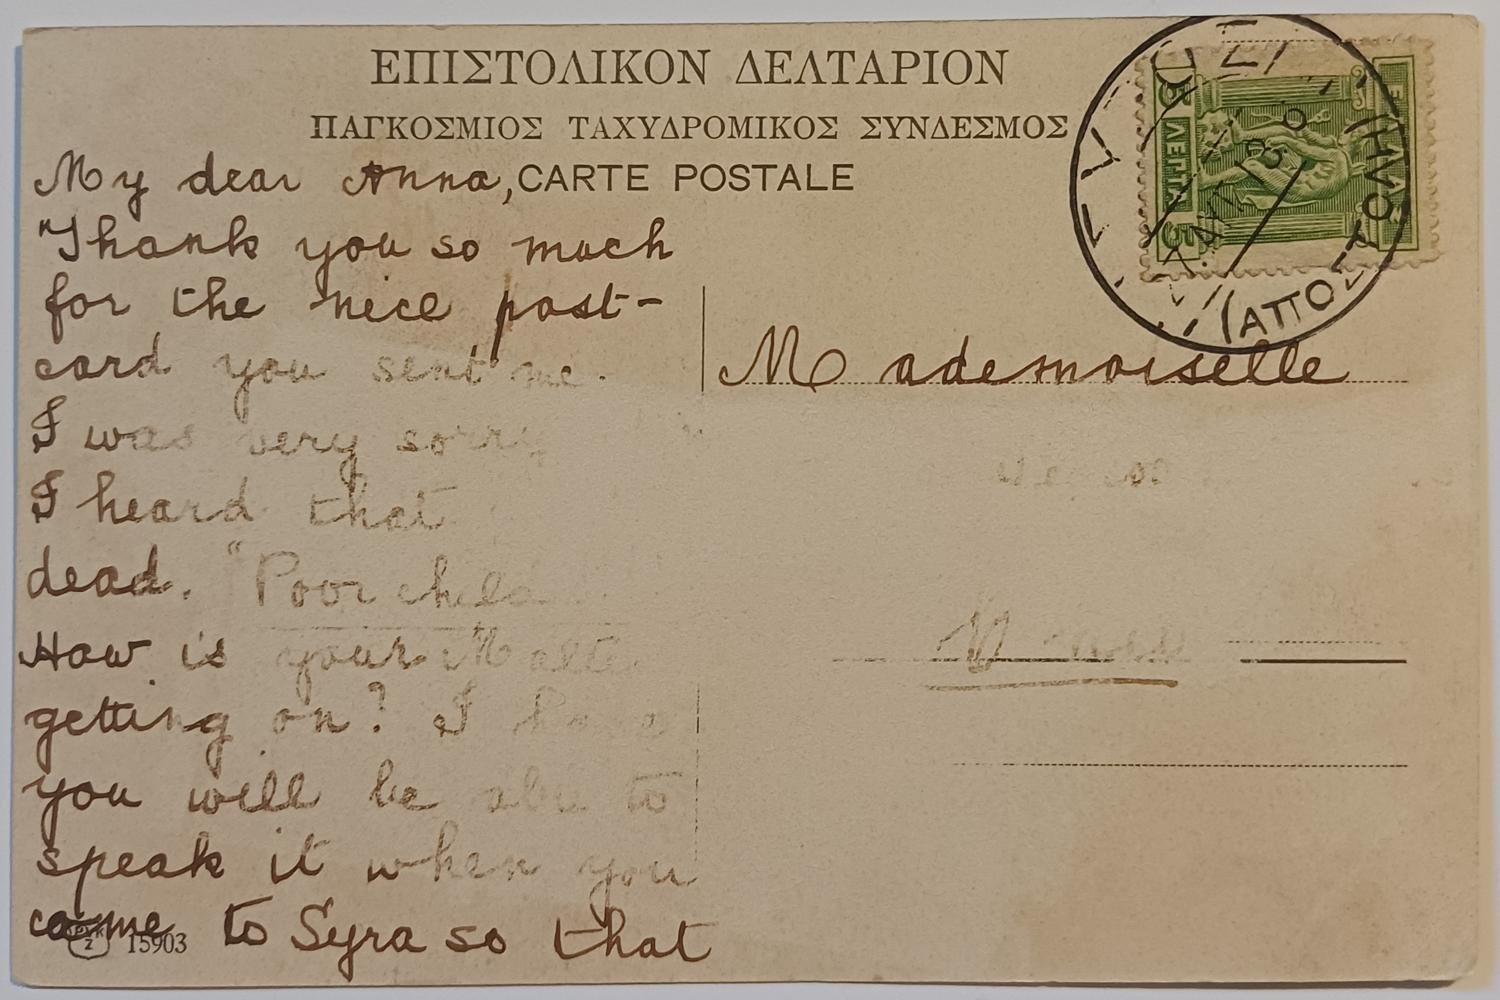 ΕΠΙΣΤΟΛΙΚΟΝ ΔΕΛΤΑΡΙΟΝ
ΠΑΓΚΟΣΜΙΟΣ ΤΑΧΥΔΡΟΜΙΚΟΣ ΣΥΝΔΕΣΜΟΣ
CARTE POSTALE
My dear Anna,
"Thank you so much
for the nice post-
card you sent me.
I was very sorry
I heard that
dead. "Poor child
How is your
getting on? I
you will be able to
speak it when you
come to Syra so that
15903
5 ΛΕΠΤΑ 5
(ΑΠΟ
Mademoiselle